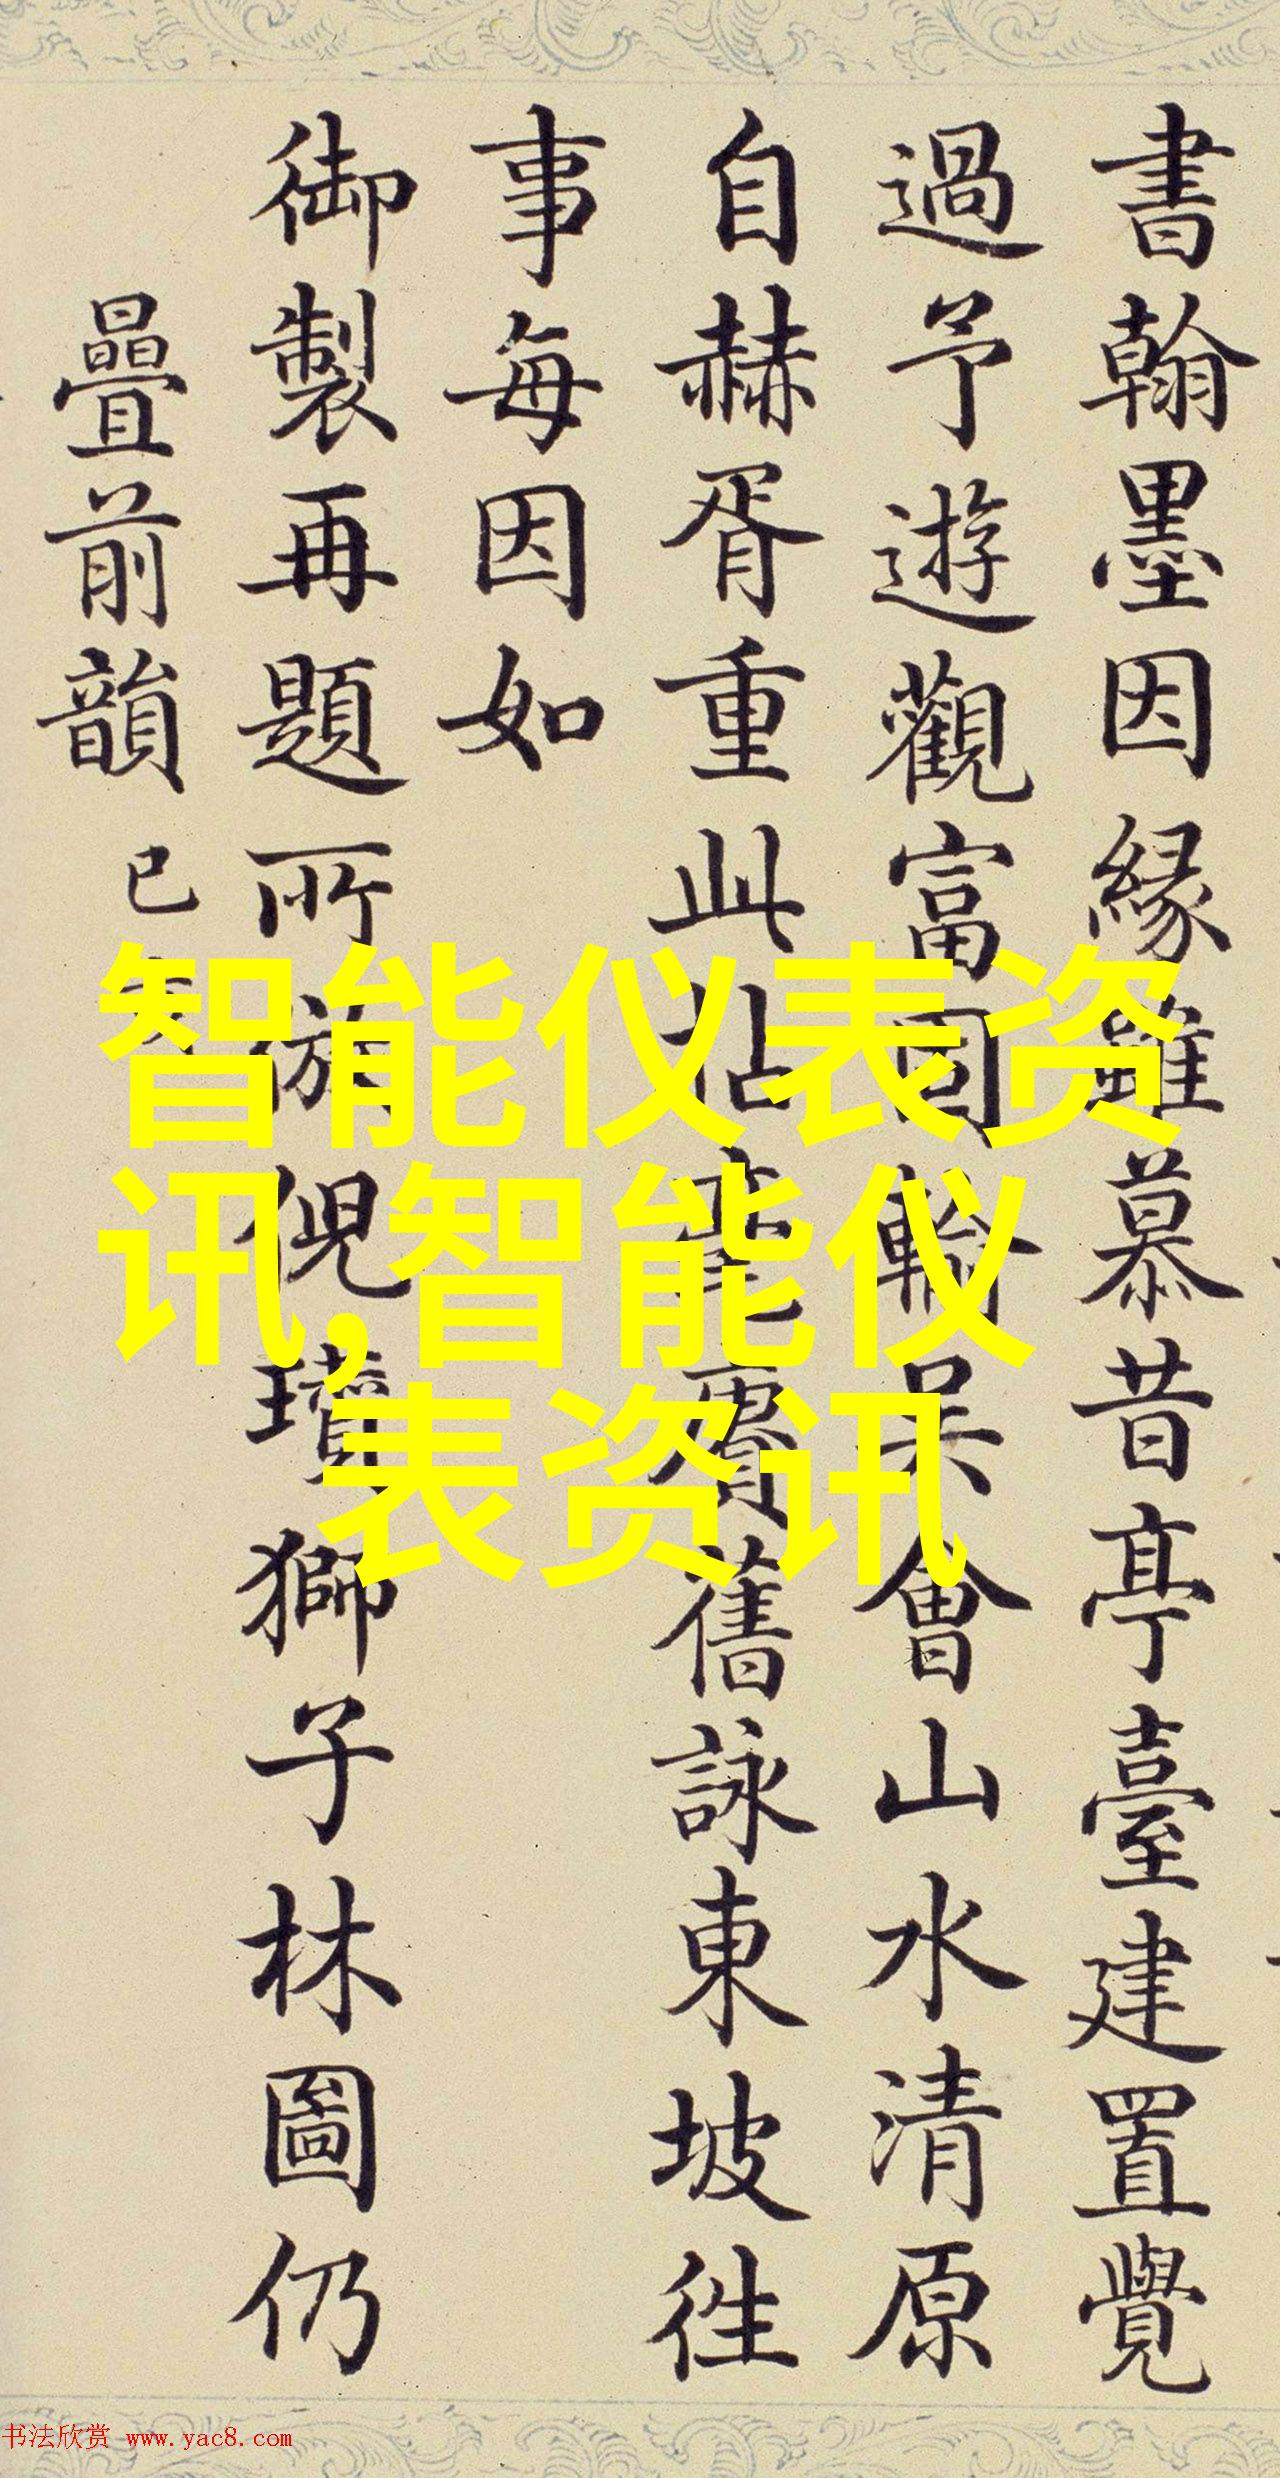 書翰墨因緣雖慕昔亭臺建置覺
過予遊觀富園輸吳會山水清原
自赫胥重此帖耄賡舊詠東坡往
事每因如
御製再題所倣倪瓚獅子林圖仍
疊前韻 已
智能仪表资
讯,智能仪
表资讯
书法欣赏 www.yac8.com